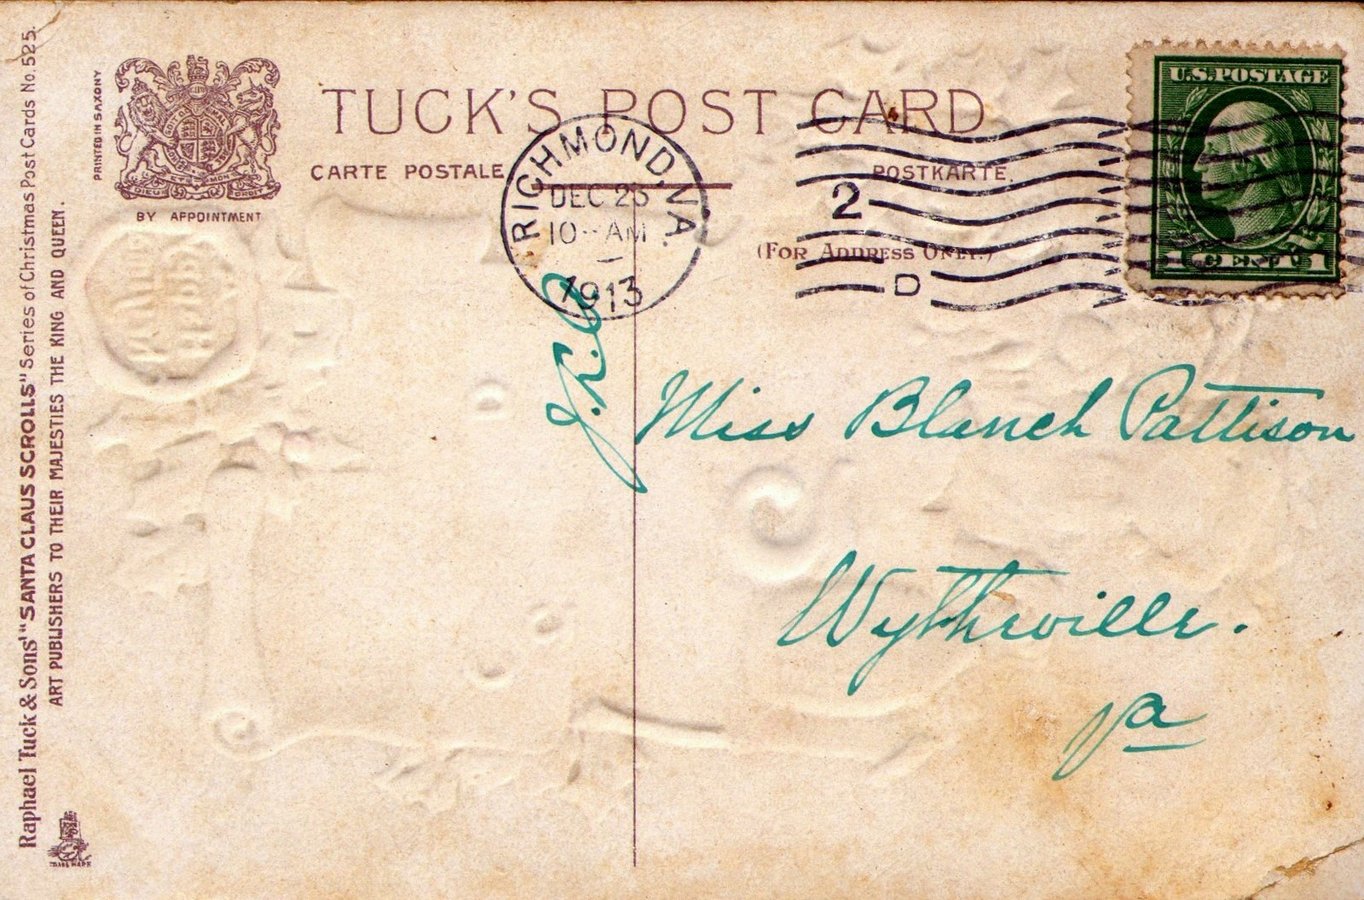 TUCK'S POST CARD
CARTE POSTALE
POSTKARTE.
(FOR ADDRESS ONLY.)
BY APPOINTMENT
PRINTED IN SAXONY
Raphael Tuck & Sons' "SANTA CLAUS SCROLLS" Series of Christmas Post Cards No. 525.
ART PUBLISHERS TO THEIR MAJESTIES THE KING AND QUEEN.
TRADE MARK
RICHMOND, VA.
DEC 23
10-AM
1913
2
D
U.S. POSTAGE
1 CENT 1
Miss Blanch Pattison
Wytheville.
Va